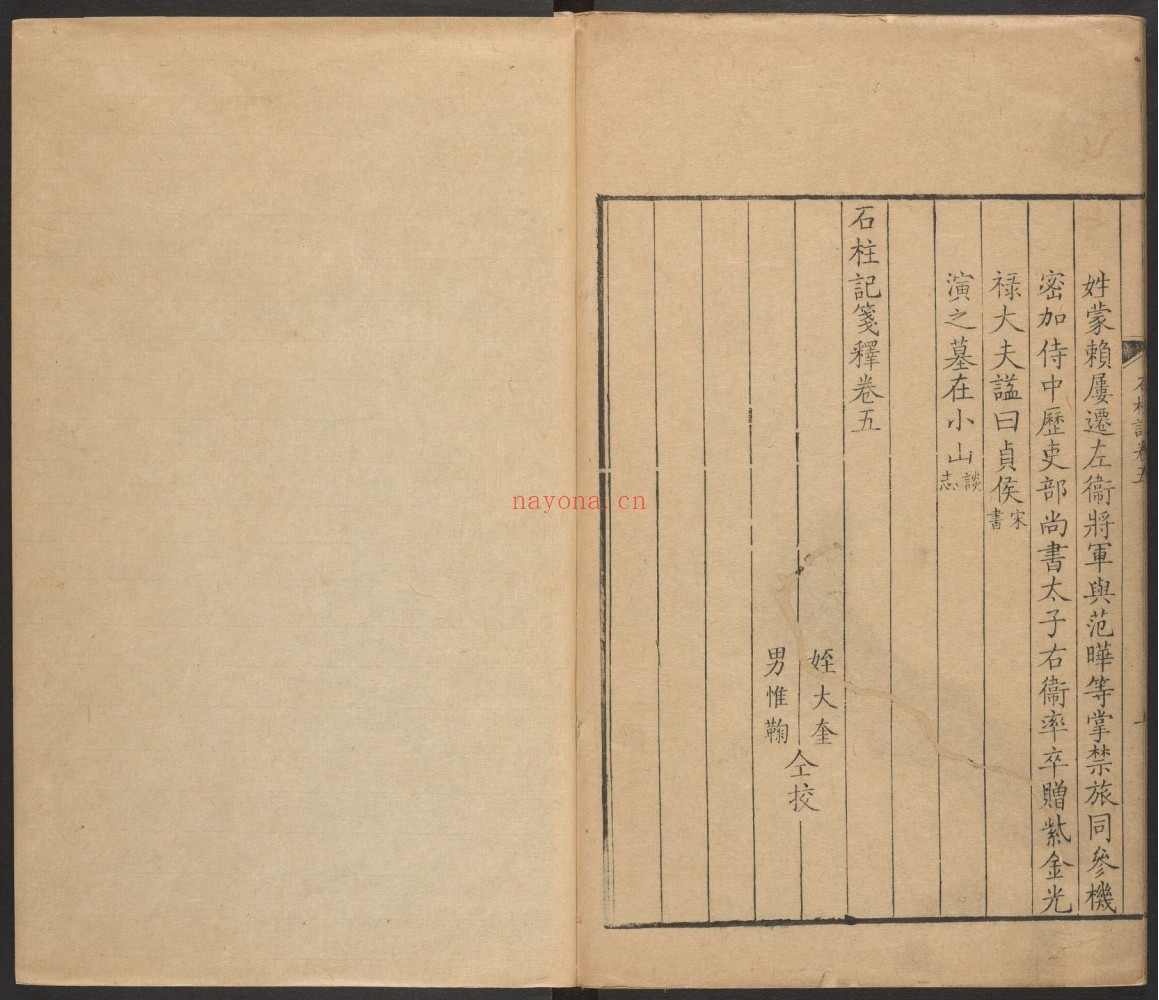 姓蒙賴屢遷左衞將軍與范曄等掌禁旅同參機
密加侍中歷吏部尚書太子右衞率卒贈紫金光
禄大夫謚曰貞侯宋書
演之墓在小山談志
石柱記箋釋卷五
姪大奎
男惟鞠
仝挍
nayona.cn